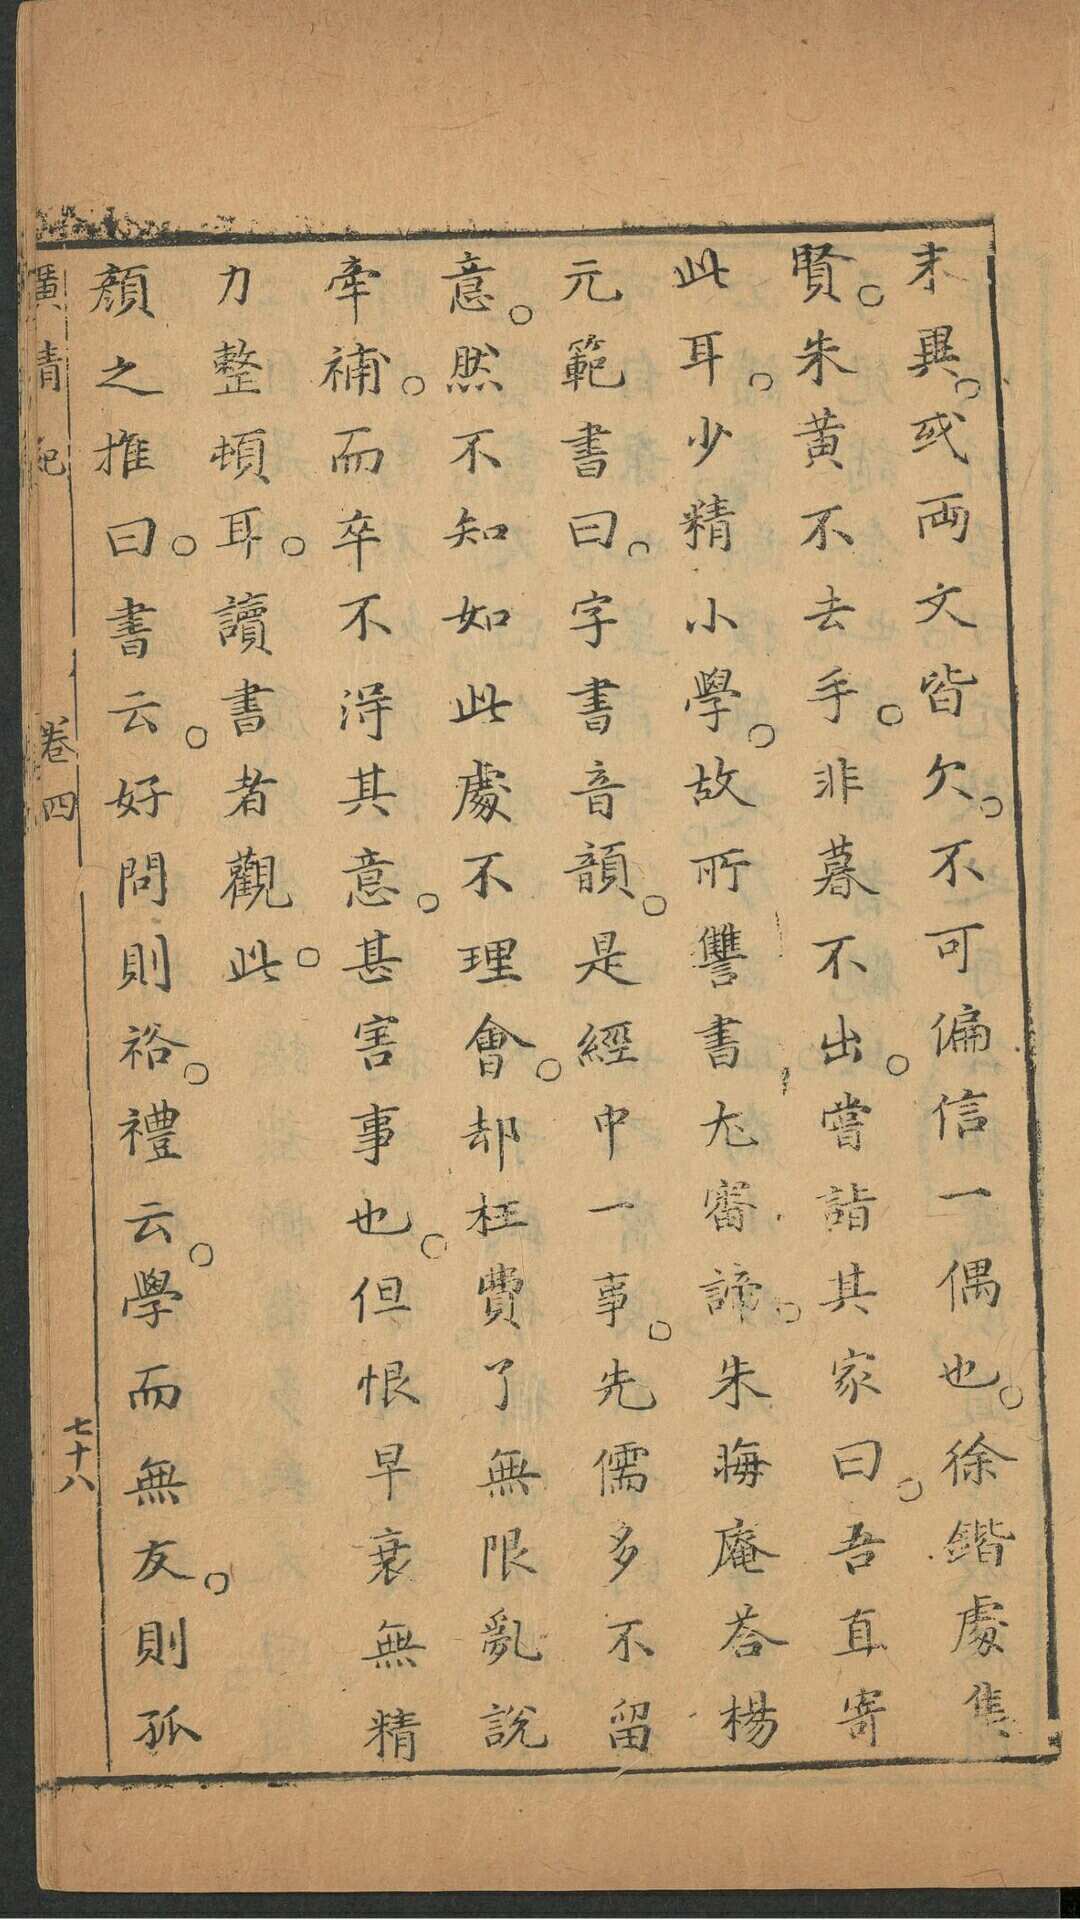 末異。或両文皆欠。不可偏信一偶也。徐鍇處集
賢。朱黄不去手。非暮不出。嘗詣其家曰。吾直寄
此耳。少精小學。故所讐書尤審諦。朱晦庵荅楊
元範書曰。字書音韻。是經中一事。先儒多不留
意。然不知如此處不理會。却枉費了無限亂說
牽補。而卒不淂其意。甚害事也。但恨早衰無精
力整頓耳。讀書者觀此。
顔之推曰。書云。好問則裕。禮云。學而無友。則孤
廣清紀 卷四 七十八